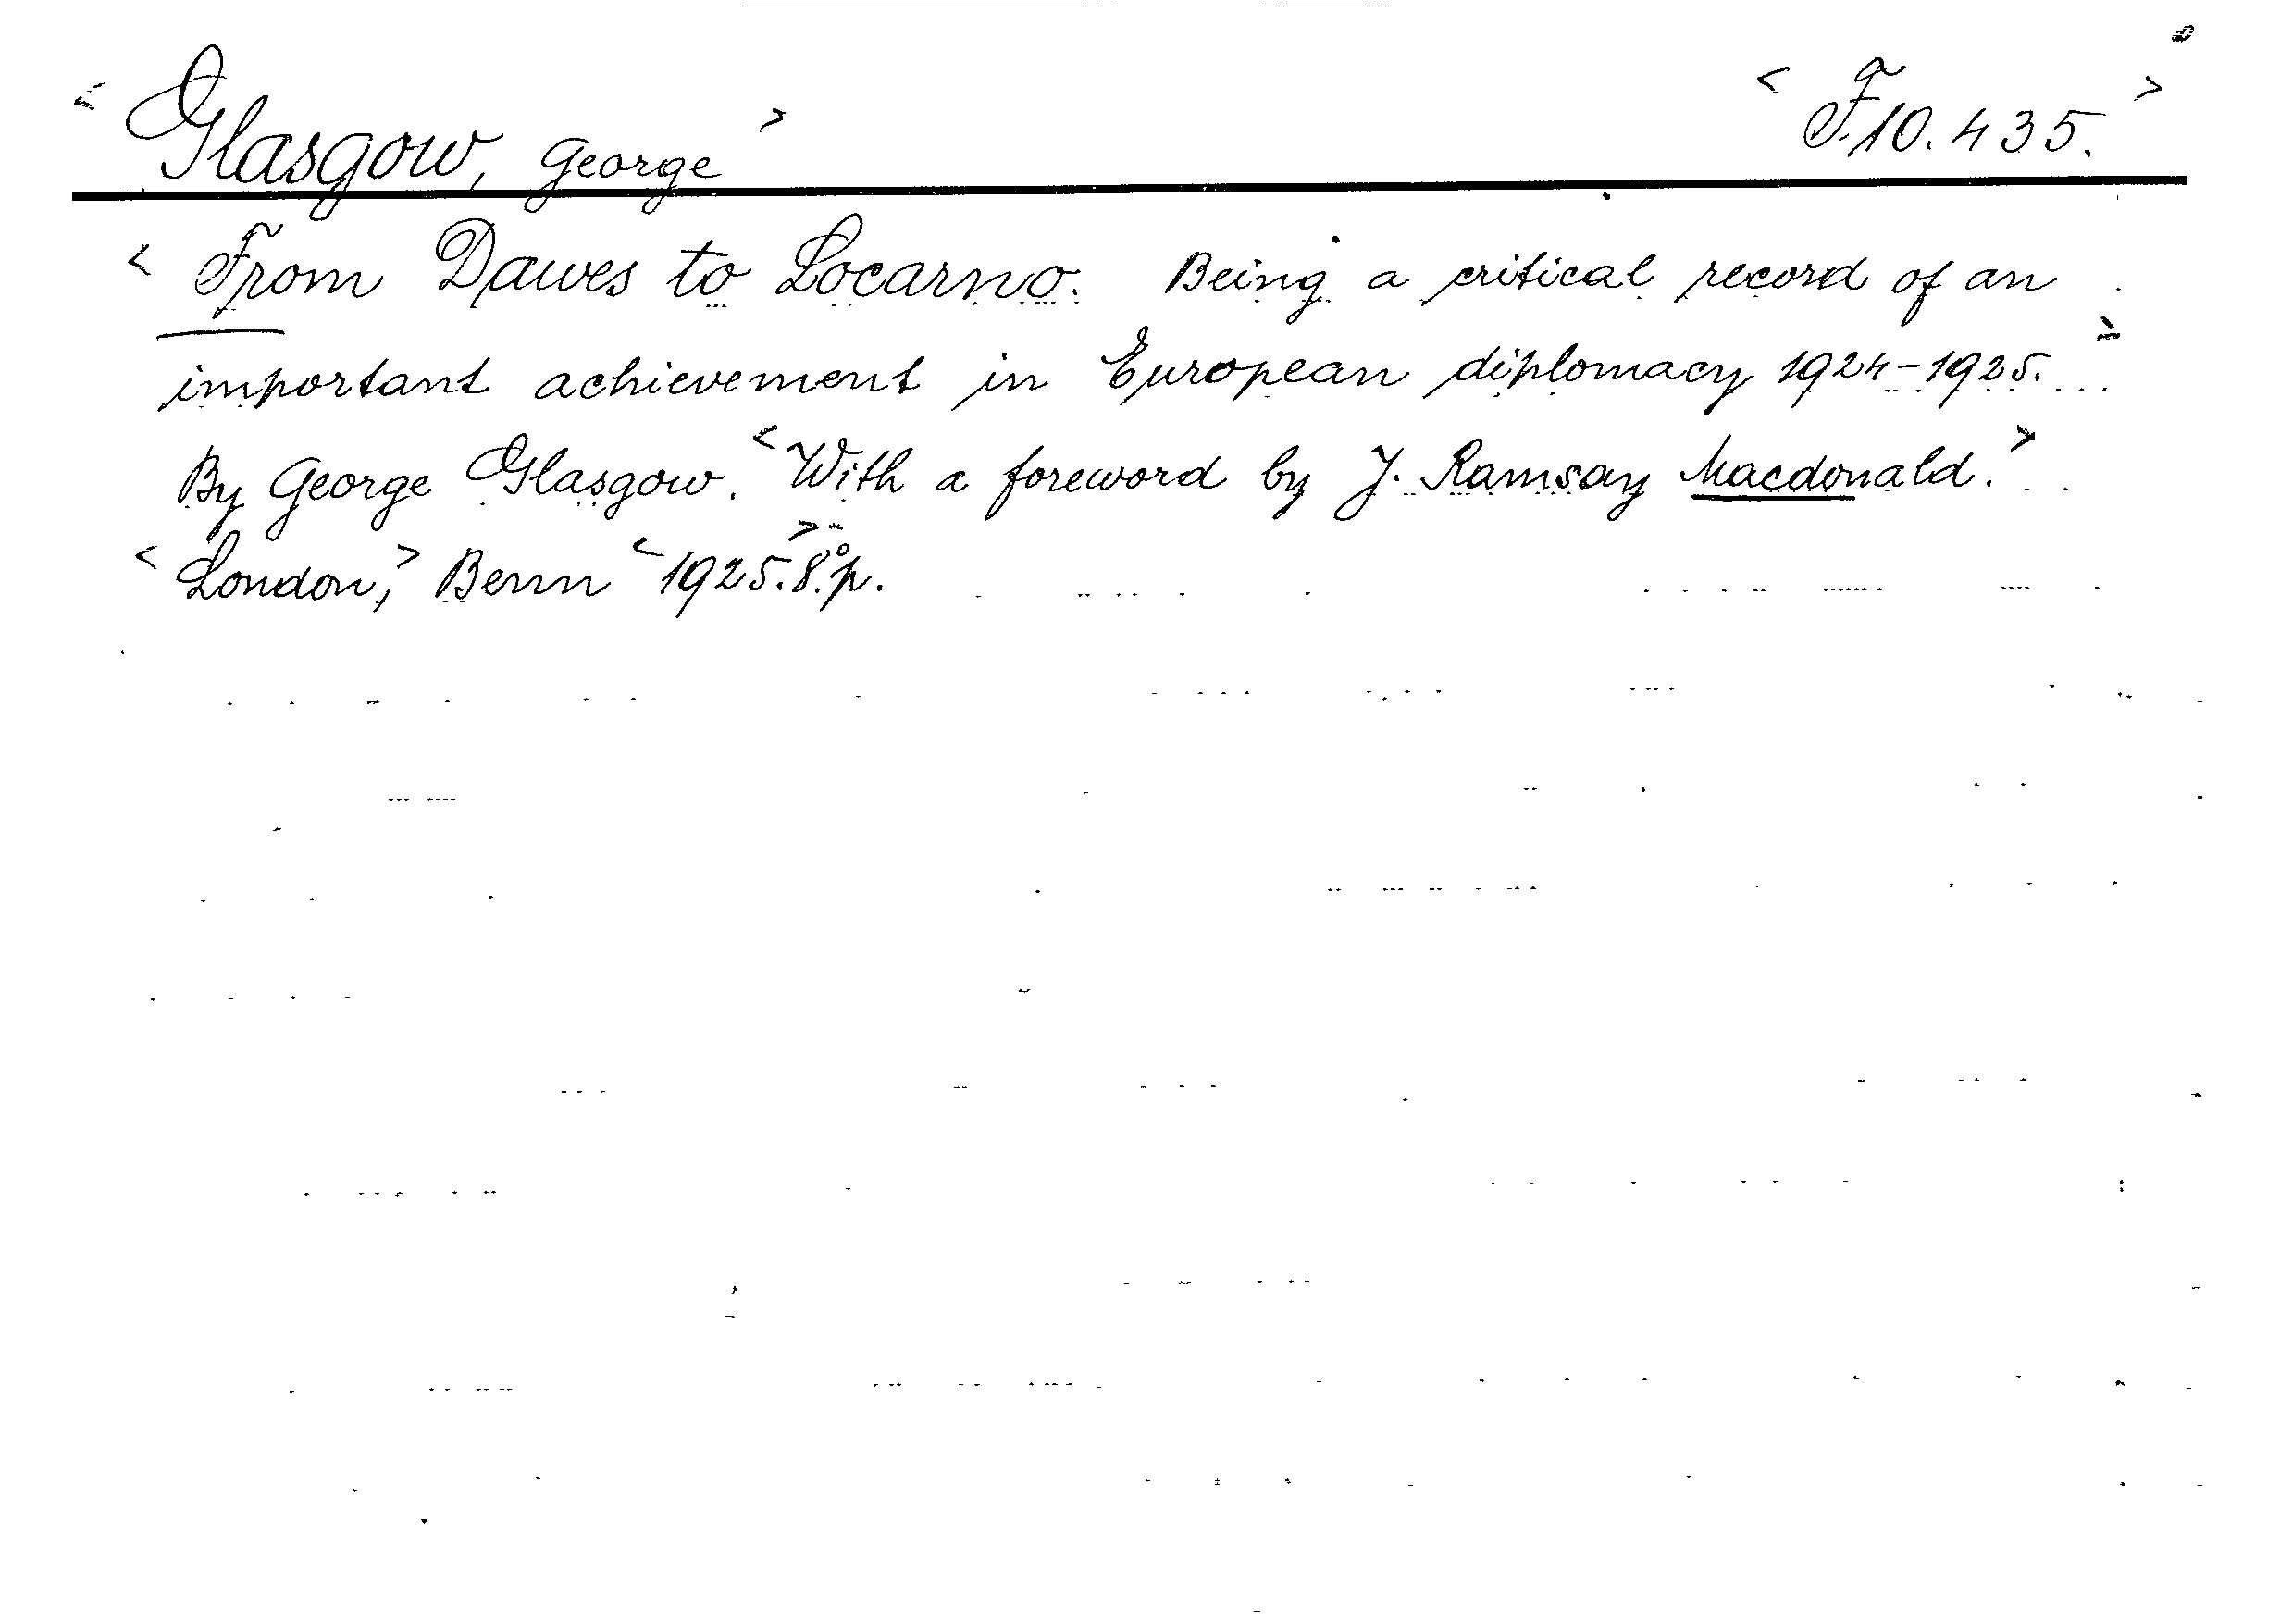 < Glasgow, George > < F.10.435. >
< From Dawes to Locarno. Being a critical record of an
important achievement in European diplomacy 1924-1925. >
By George Glasgow. < With a foreword by J. Ramsay Macdonald. >
< London, > Benn < 1925. > 8.° p.